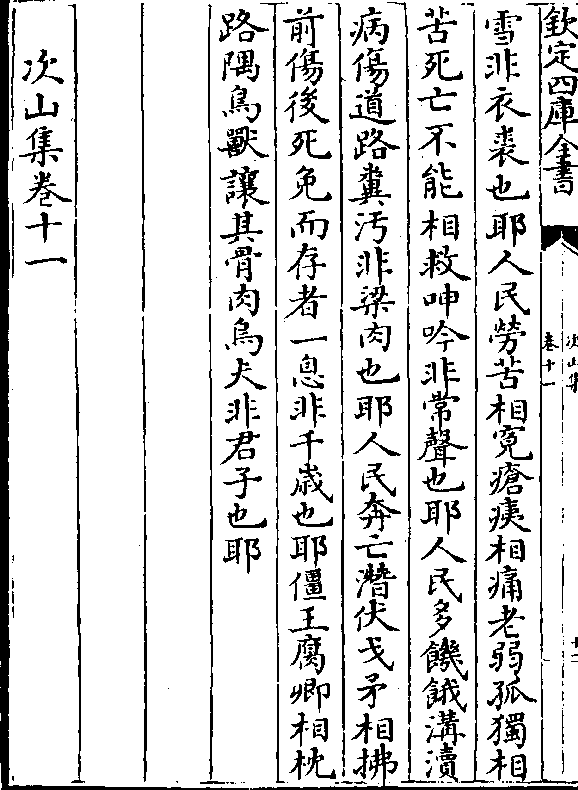 欽定四庫全書
次山集
卷十一
雪非衣裘也耶人民勞苦相寃瘡痍相痛老弱孤獨相
苦死亡不能相救呻吟非常聲也耶人民多饑餓溝瀆
病傷道路糞汚非粱肉也耶人民奔亡潛伏戈矛相拂
前傷後死免而存者一息非千歳也耶僵王腐卿相枕
路隅鳥獸讓其骨肉烏夫非君子也耶
次山集卷十一